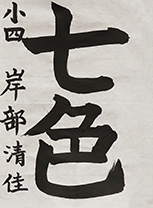 七色
小四 岸部清佳